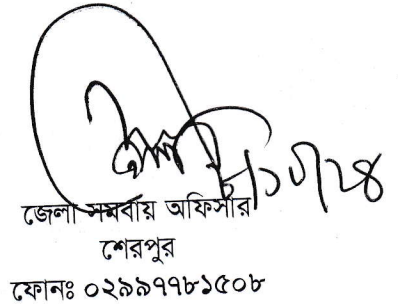 ৮/১০/২৪
জেলা সমবায় অফিসার
শেরপুর
ফোনঃ ০২৯৯৭৭৮১৫০৮